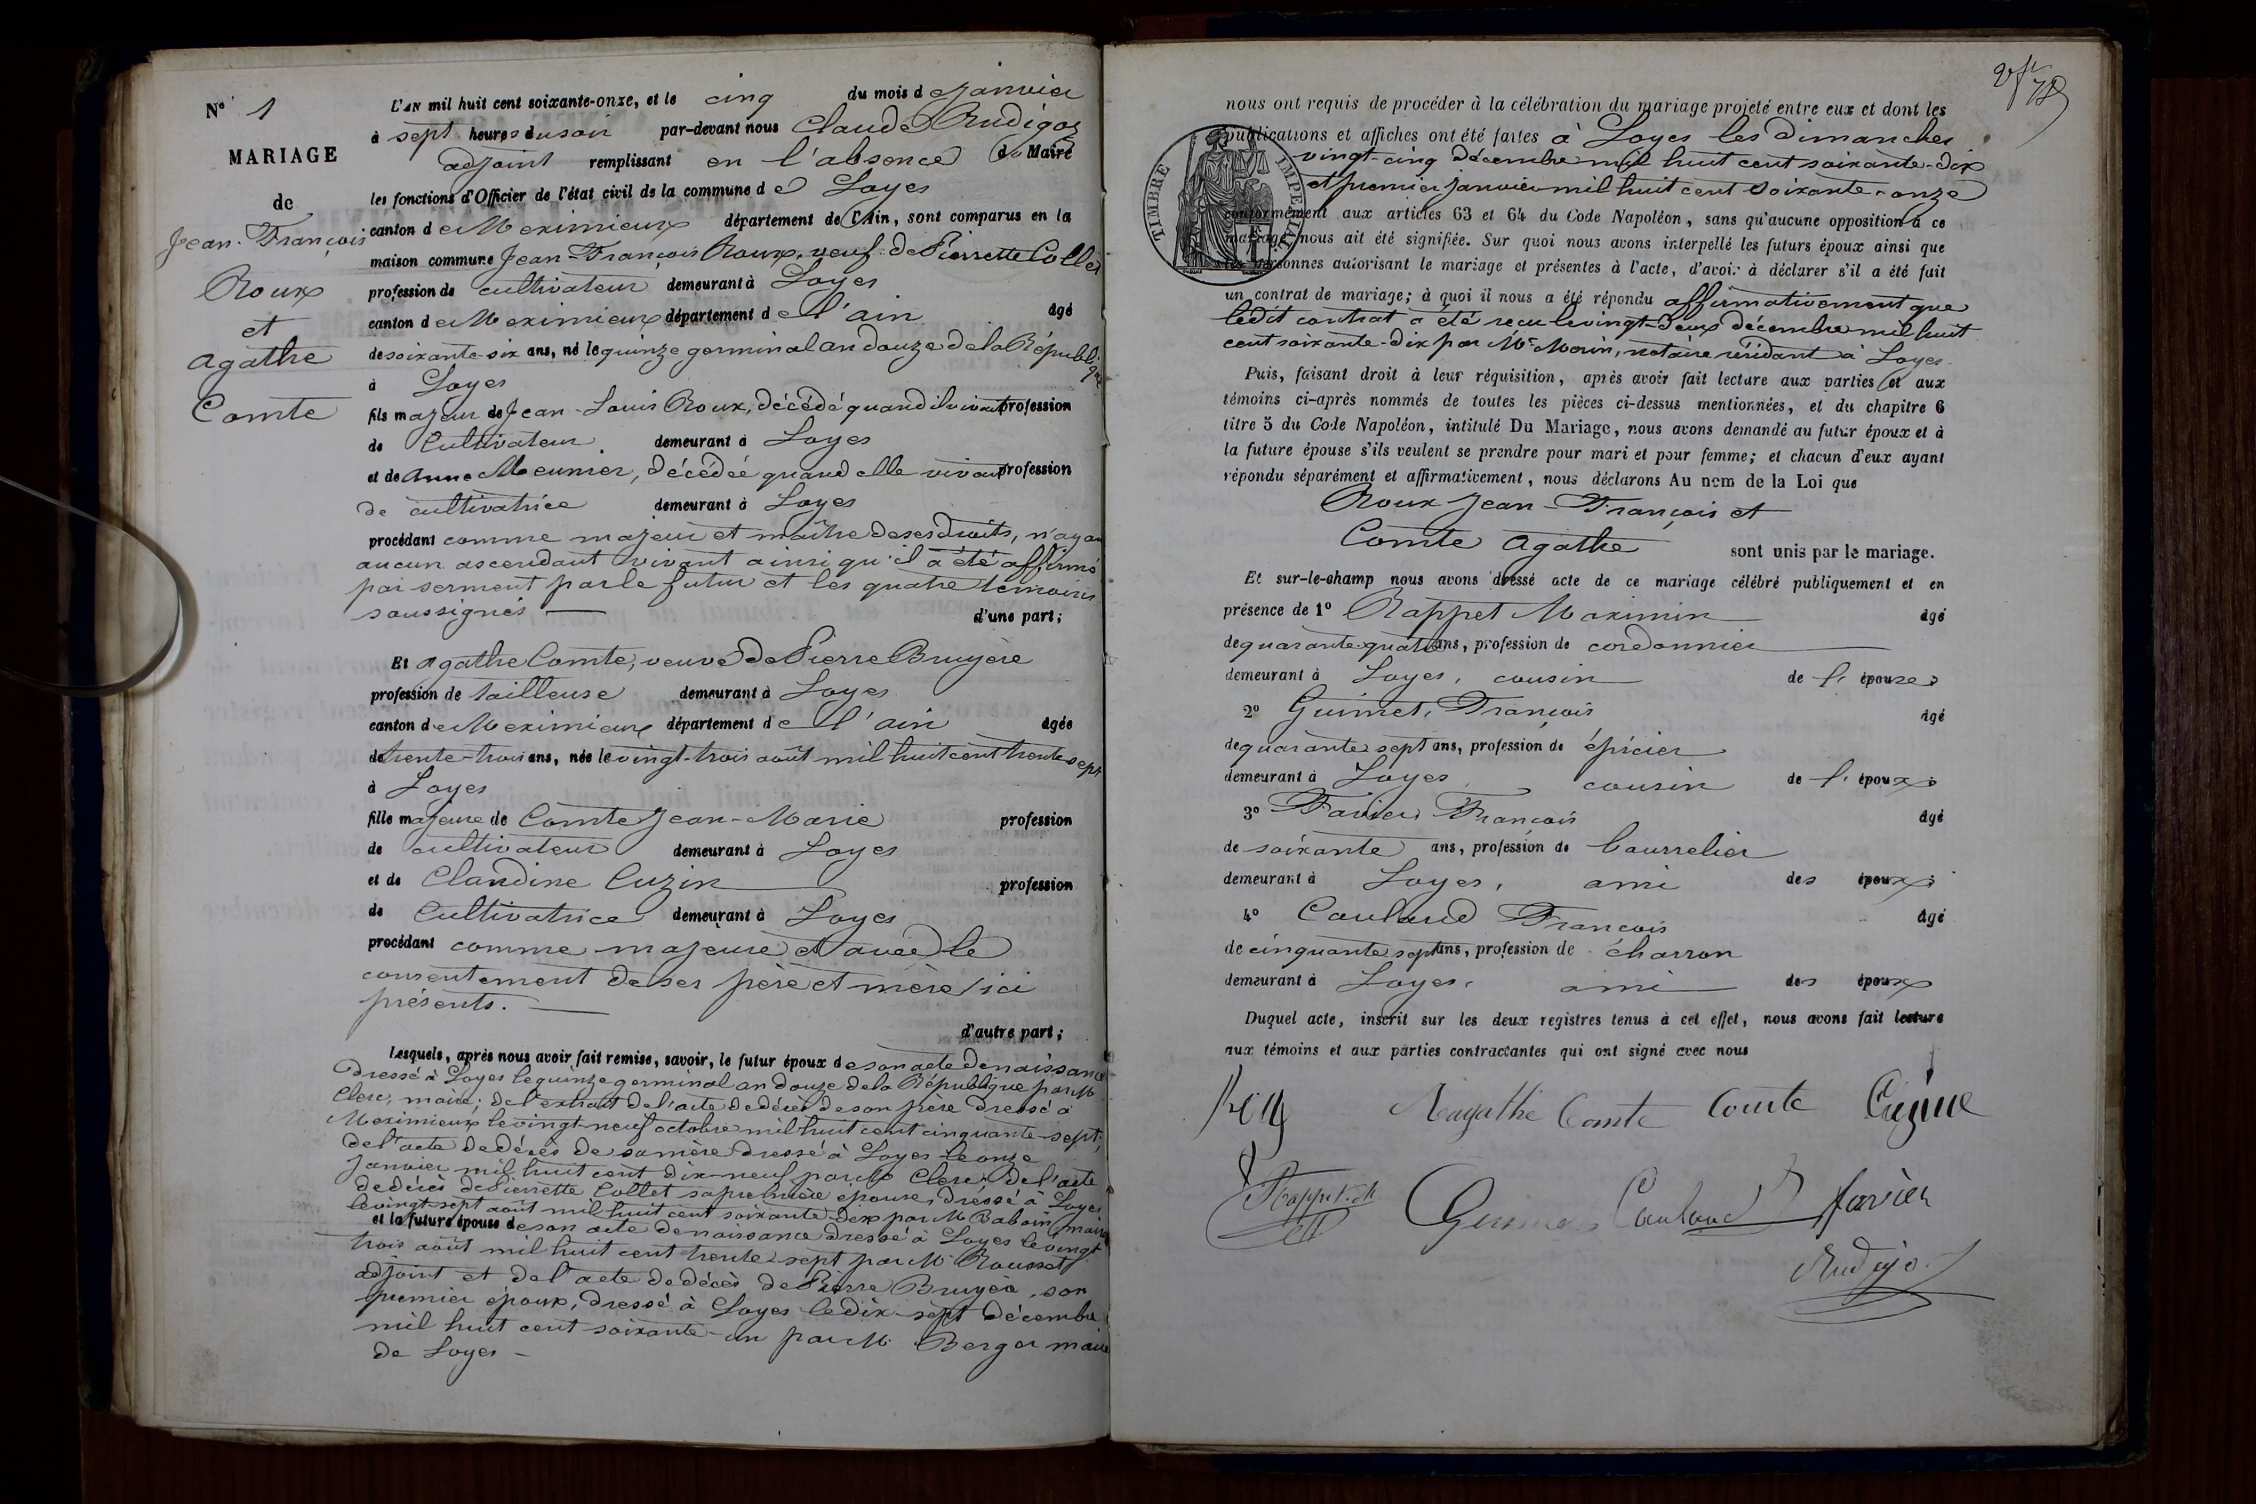 N° 1
MARIAGE
de
Jean-François
Roux
et
Agathe
Comte
L'AN mil huit cent soixante-onze, et le cinq du mois de Janvier
à sept heures du soir par-devant nous Claude Rudigoz
adjoint remplissant en l'absence du Maire
les fonctions d'Officier de l'état civil de la commune de Loyes
canton de Meximieux département de l'Ain, sont comparus en la
maison commune Jean-François Roux, veuf de Pierrette Collet
profession de cultivateur demeurant à Loyes
canton de Meximieux département de l'ain âgé
de soixante-six ans, né le quinze germinal an douze de la République
à Loyes
fils majeur de Jean-Louis Roux, décédé quand il vivait profession
de Cultivateur demeurant à Loyes
et de Anne Meunier, décédée quand elle vivait profession
de cultivatrice demeurant à Loyes
procédant comme majeur et maître de ses droits, n'ayant
aucun ascendant vivant ainsi qu'il a été affirmé
par serment par le futur et les quatre témoins
soussignés d'une part;
Et Agathe Comte, veuve de Pierre Bruyère
profession de tailleuse demeurant à Loyes
canton de Meximieux département de l'ain âgée
de trente-trois ans, née le vingt-trois août mil huit cent trente sept
à Loyes
fille majeure de Comte Jean-Marie profession
de cultivateur demeurant à Loyes
et de Claudine Cuzin profession
de Cultivatrice demeurant à Loyes
procédant comme majeure et avec le
consentement de ses père et mère ici
présents.
d'autre part;
Lesquels, après nous avoir fait remise, savoir, le futur époux de son acte de naissance
dressé à Loyes le quinze germinal an douze de la République par M.
Clerc, maire; de l'extrait de l'acte de décès de son père dressé à
Meximieux le vingt-neuf octobre mil huit cent cinquante-sept;
de l'acte de décès de sa mère dressé à Loyes le onze
janvier mil huit cent dix-neuf par M. Clerc; de l'acte
de décès de Pierrette Collet sa première épouse, dressé à Loyes
le vingt-sept août mil huit cent soixante-dix par M. Baboin maire
et la future épouse de son acte de naissance dressé à Loyes le vingt
trois août mil huit cent trente sept par M. Rousset
adjoint et de l'acte de décès de Pierre Bruyère, son
premier époux, dressé à Loyes le dix-sept décembre
mil huit cent soixante-un par M. Berger maire
de Loyes -
nous ont requis de procéder à la célébration du mariage projeté entre eux et dont les
publications et affiches ont été faites à Loyes les dimanches
vingt-cinq décembre mil huit cent soixante-dix
et premier janvier mil huit cent soixante-onze
TIMBRE IMPERIAL
conformément aux articles 63 et 64 du Code Napoléon, sans qu'aucune opposition à ce
mariage nous ait été signifiée. Sur quoi nous avons interpellé les futurs époux ainsi que
les personnes autorisant le mariage et présentes à l'acte, d'avoir à déclarer s'il a été fait
un contrat de mariage; à quoi il nous a été répondu affirmativement que
ledit contrat a été reçu le vingt-deux décembre mil huit
cent soixante-dix par Me Morin, notaire résidant à Loyes
Puis, faisant droit à leur réquisition, après avoir fait lecture aux parties et aux
témoins ci-après nommés de toutes les pièces ci-dessus mentionnées, et du chapitre 6
titre 5 du Code Napoléon, intitulé Du Mariage, nous avons demandé au futur époux et à
la future épouse s'ils veulent se prendre pour mari et pour femme; et chacun d'eux ayant
répondu séparément et affirmativement, nous déclarons Au nom de la Loi que
Roux Jean-François et
Comte Agathe sont unis par le mariage.
Et sur-le-champ nous avons dressé acte de ce mariage célébré publiquement et en
présence de 1° Rappet Maximin âgé
de quarante quatre ans, profession de cordonnier
demeurant à Loyes, cousin de l'épouse
2° Guimet, François âgé
de quarante sept ans, profession de épicier
demeurant à Loyes, cousin de l'époux
3° Favier François âgé
de soixante ans, profession de bourrelier
demeurant à Loyes, ami des époux
4° Caulaud François âgé
de cinquante sept ans, profession de charron
demeurant à Loyes, ami des époux
Duquel acte, inscrit sur les deux registres tenus à cet effet, nous avons fait lecture
aux témoins et aux parties contractantes qui ont signé avec nous
Aagathe Comte Comte
Rappet M
Caulaud favier